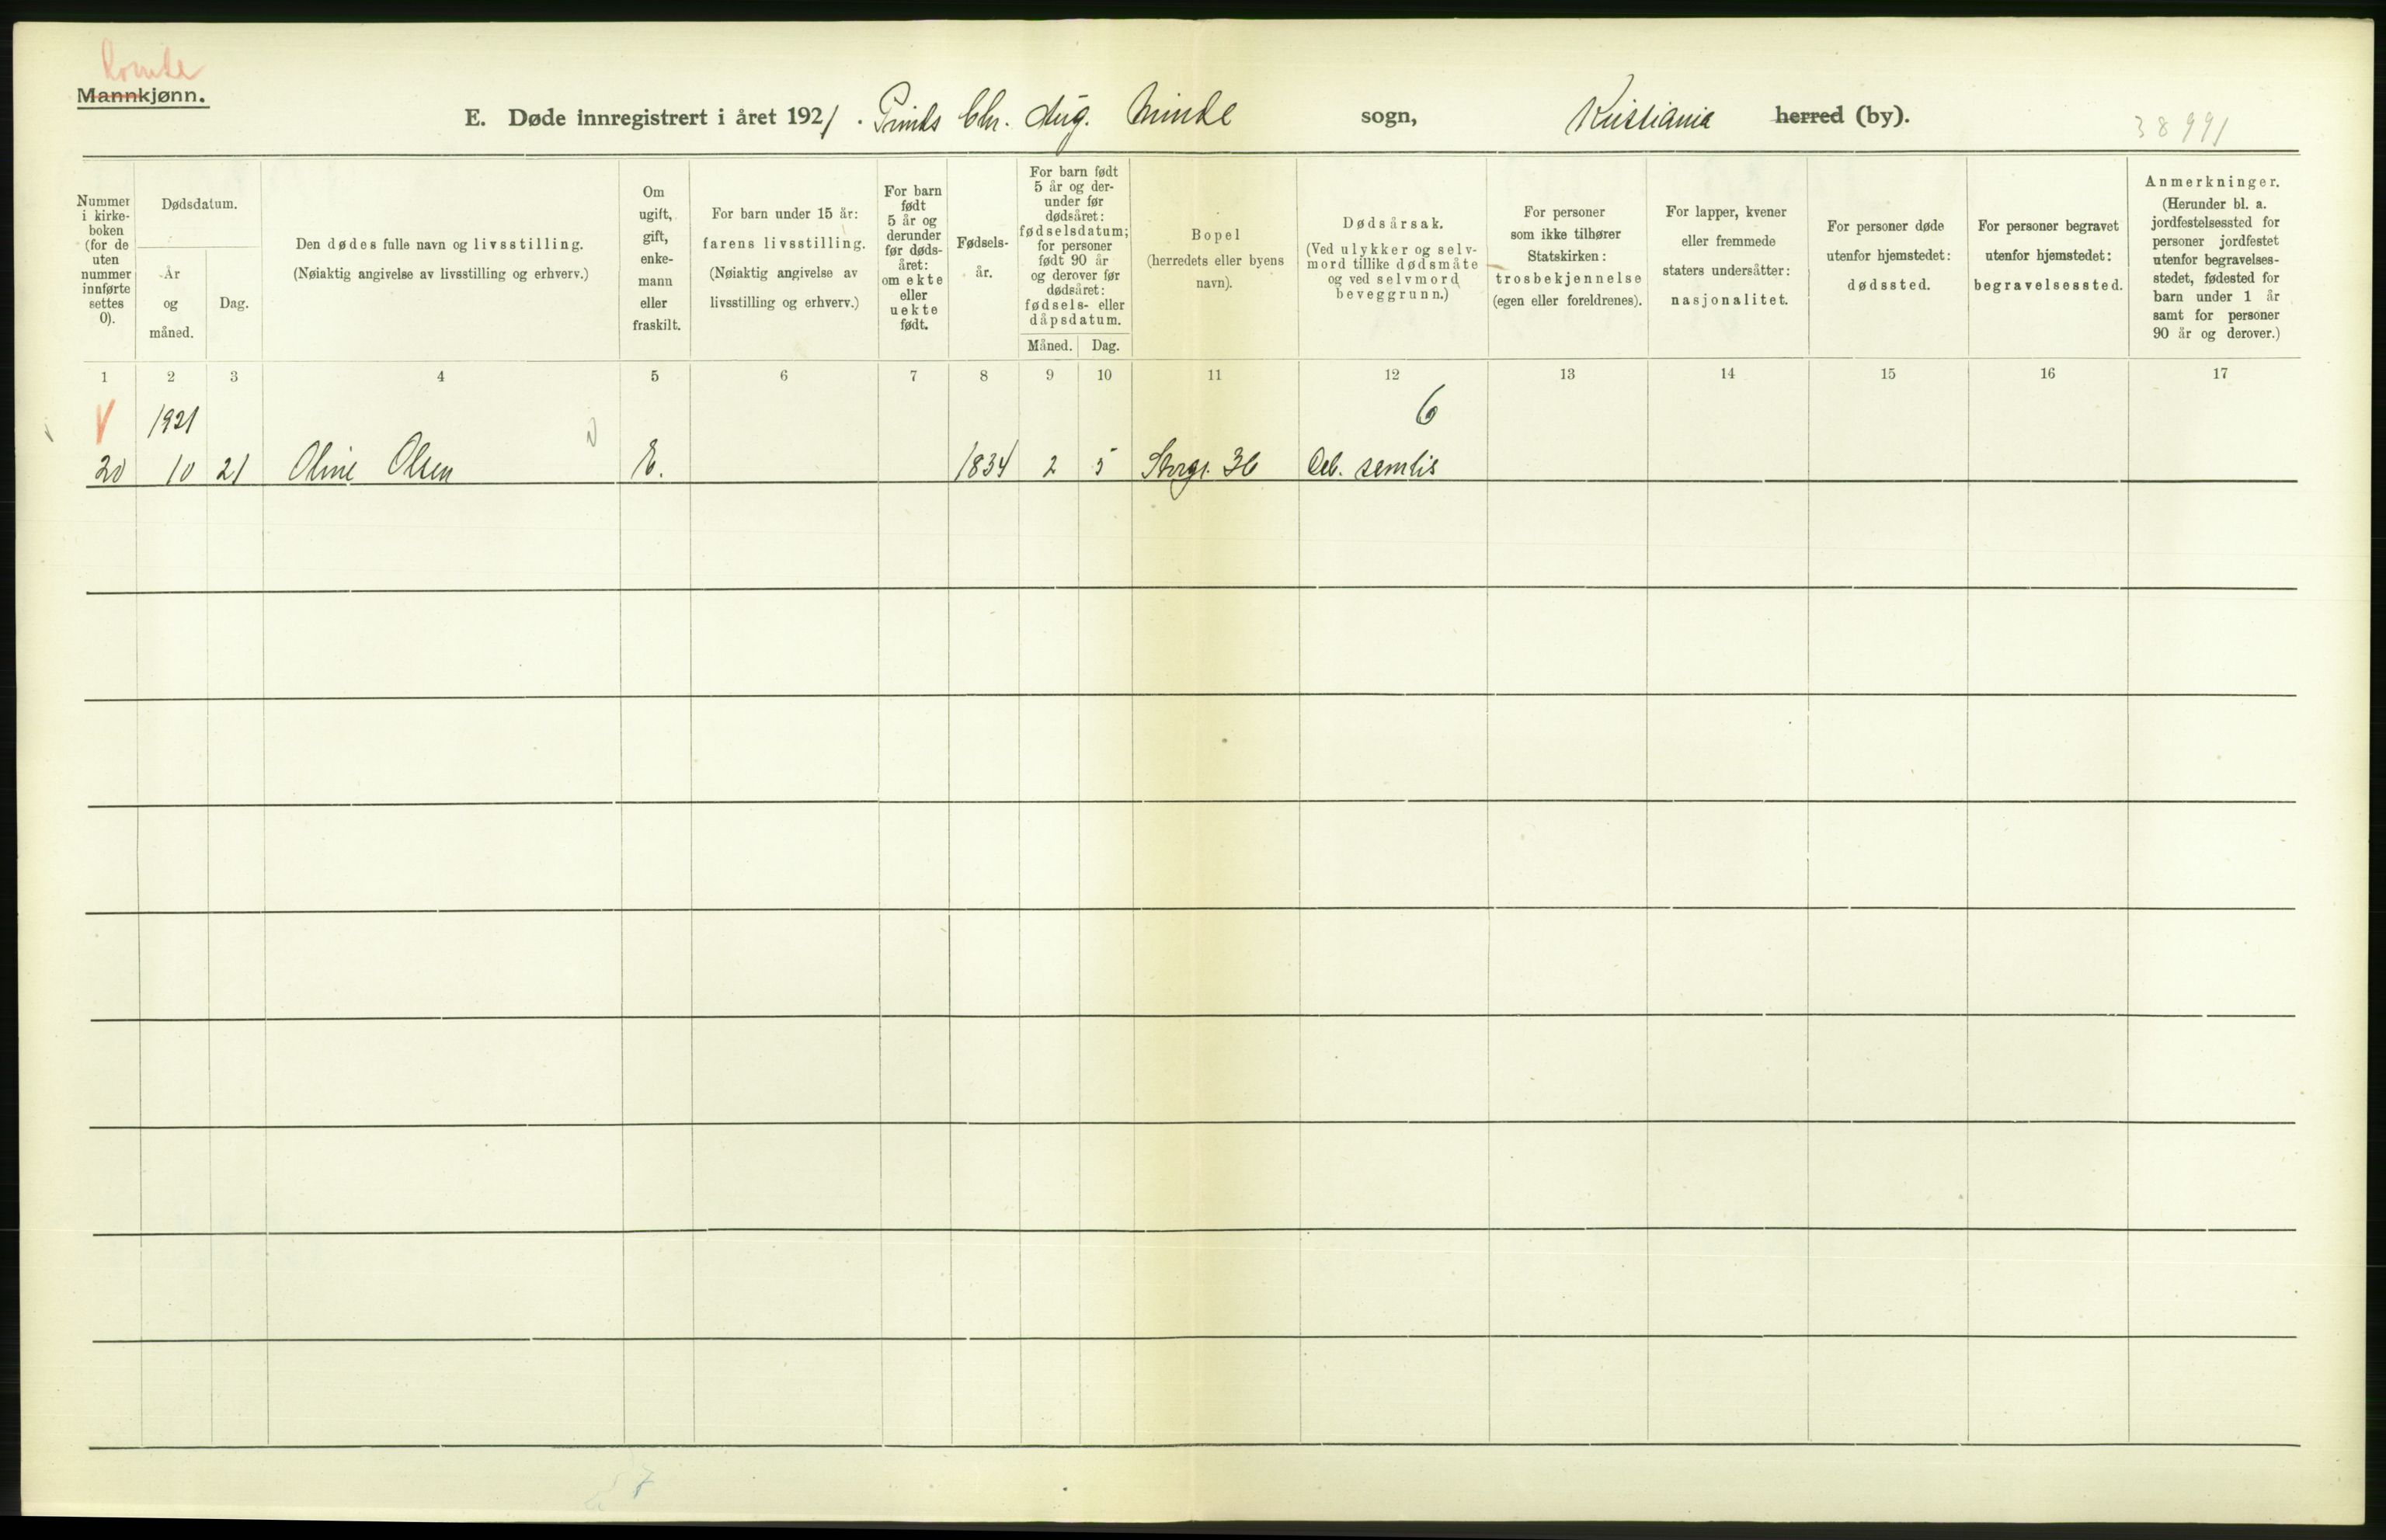 Kvinde
Mannkjønn.
E. Døde innregistrert i året 1921. Prinds Chr. Aug. Minde sogn, Kristiania herred (by).
38991
Nummer
i kirke-
boken
(for de
uten
nummer
innførte
settes
0).
Dødsdatum.
År
og
måned.
Dag.
Den dødes fulle navn og livsstilling.
(Nøiaktig angivelse av livsstilling og erhverv.)
Om
ugift,
gift,
enke-
mann
eller
fraskilt.
For barn under 15 år:
farens livsstilling.
(Nøiaktig angivelse av
livsstilling og erhverv.)
For barn
født
5 år og
derunder
før døds-
året:
om ekte
eller
uekte
født.
Fødsels-
år.
For barn født
5 år og der-
under før
dødsåret:
fødselsdatum;
for personer
født 90 år
og derover før
dødsåret:
fødsels- eller
dåpsdatum.
Måned. Dag.
Bopel
(herredets eller byens
navn).
Dødsårsak.
(Ved ulykker og selv-
mord tillike dødsmåte
og ved selvmord
beveggrunn.)
For personer
som ikke tilhører
Statskirken:
trosbekjennelse
(egen eller foreldrenes).
For lapper, kvener
eller fremmede
staters undersåtter:
nasjonalitet.
For personer døde
utenfor hjemstedet:
dødssted.
For personer begravet
utenfor hjemstedet:
begravelsessted.
Anmerkninger.
(Herunder bl. a.
jordfestelsessted for
personer jordfestet
utenfor begravelses-
stedet, fødested for
barn under 1 år
samt for personer
90 år og derover.)
1 2 3 4 5 6 7 8 9 10 11 12 13 14 15 16 17
1921 6
20 10 21 Oline Olsen E. 1834 2 5 Storgt. 36 Deb. senilis